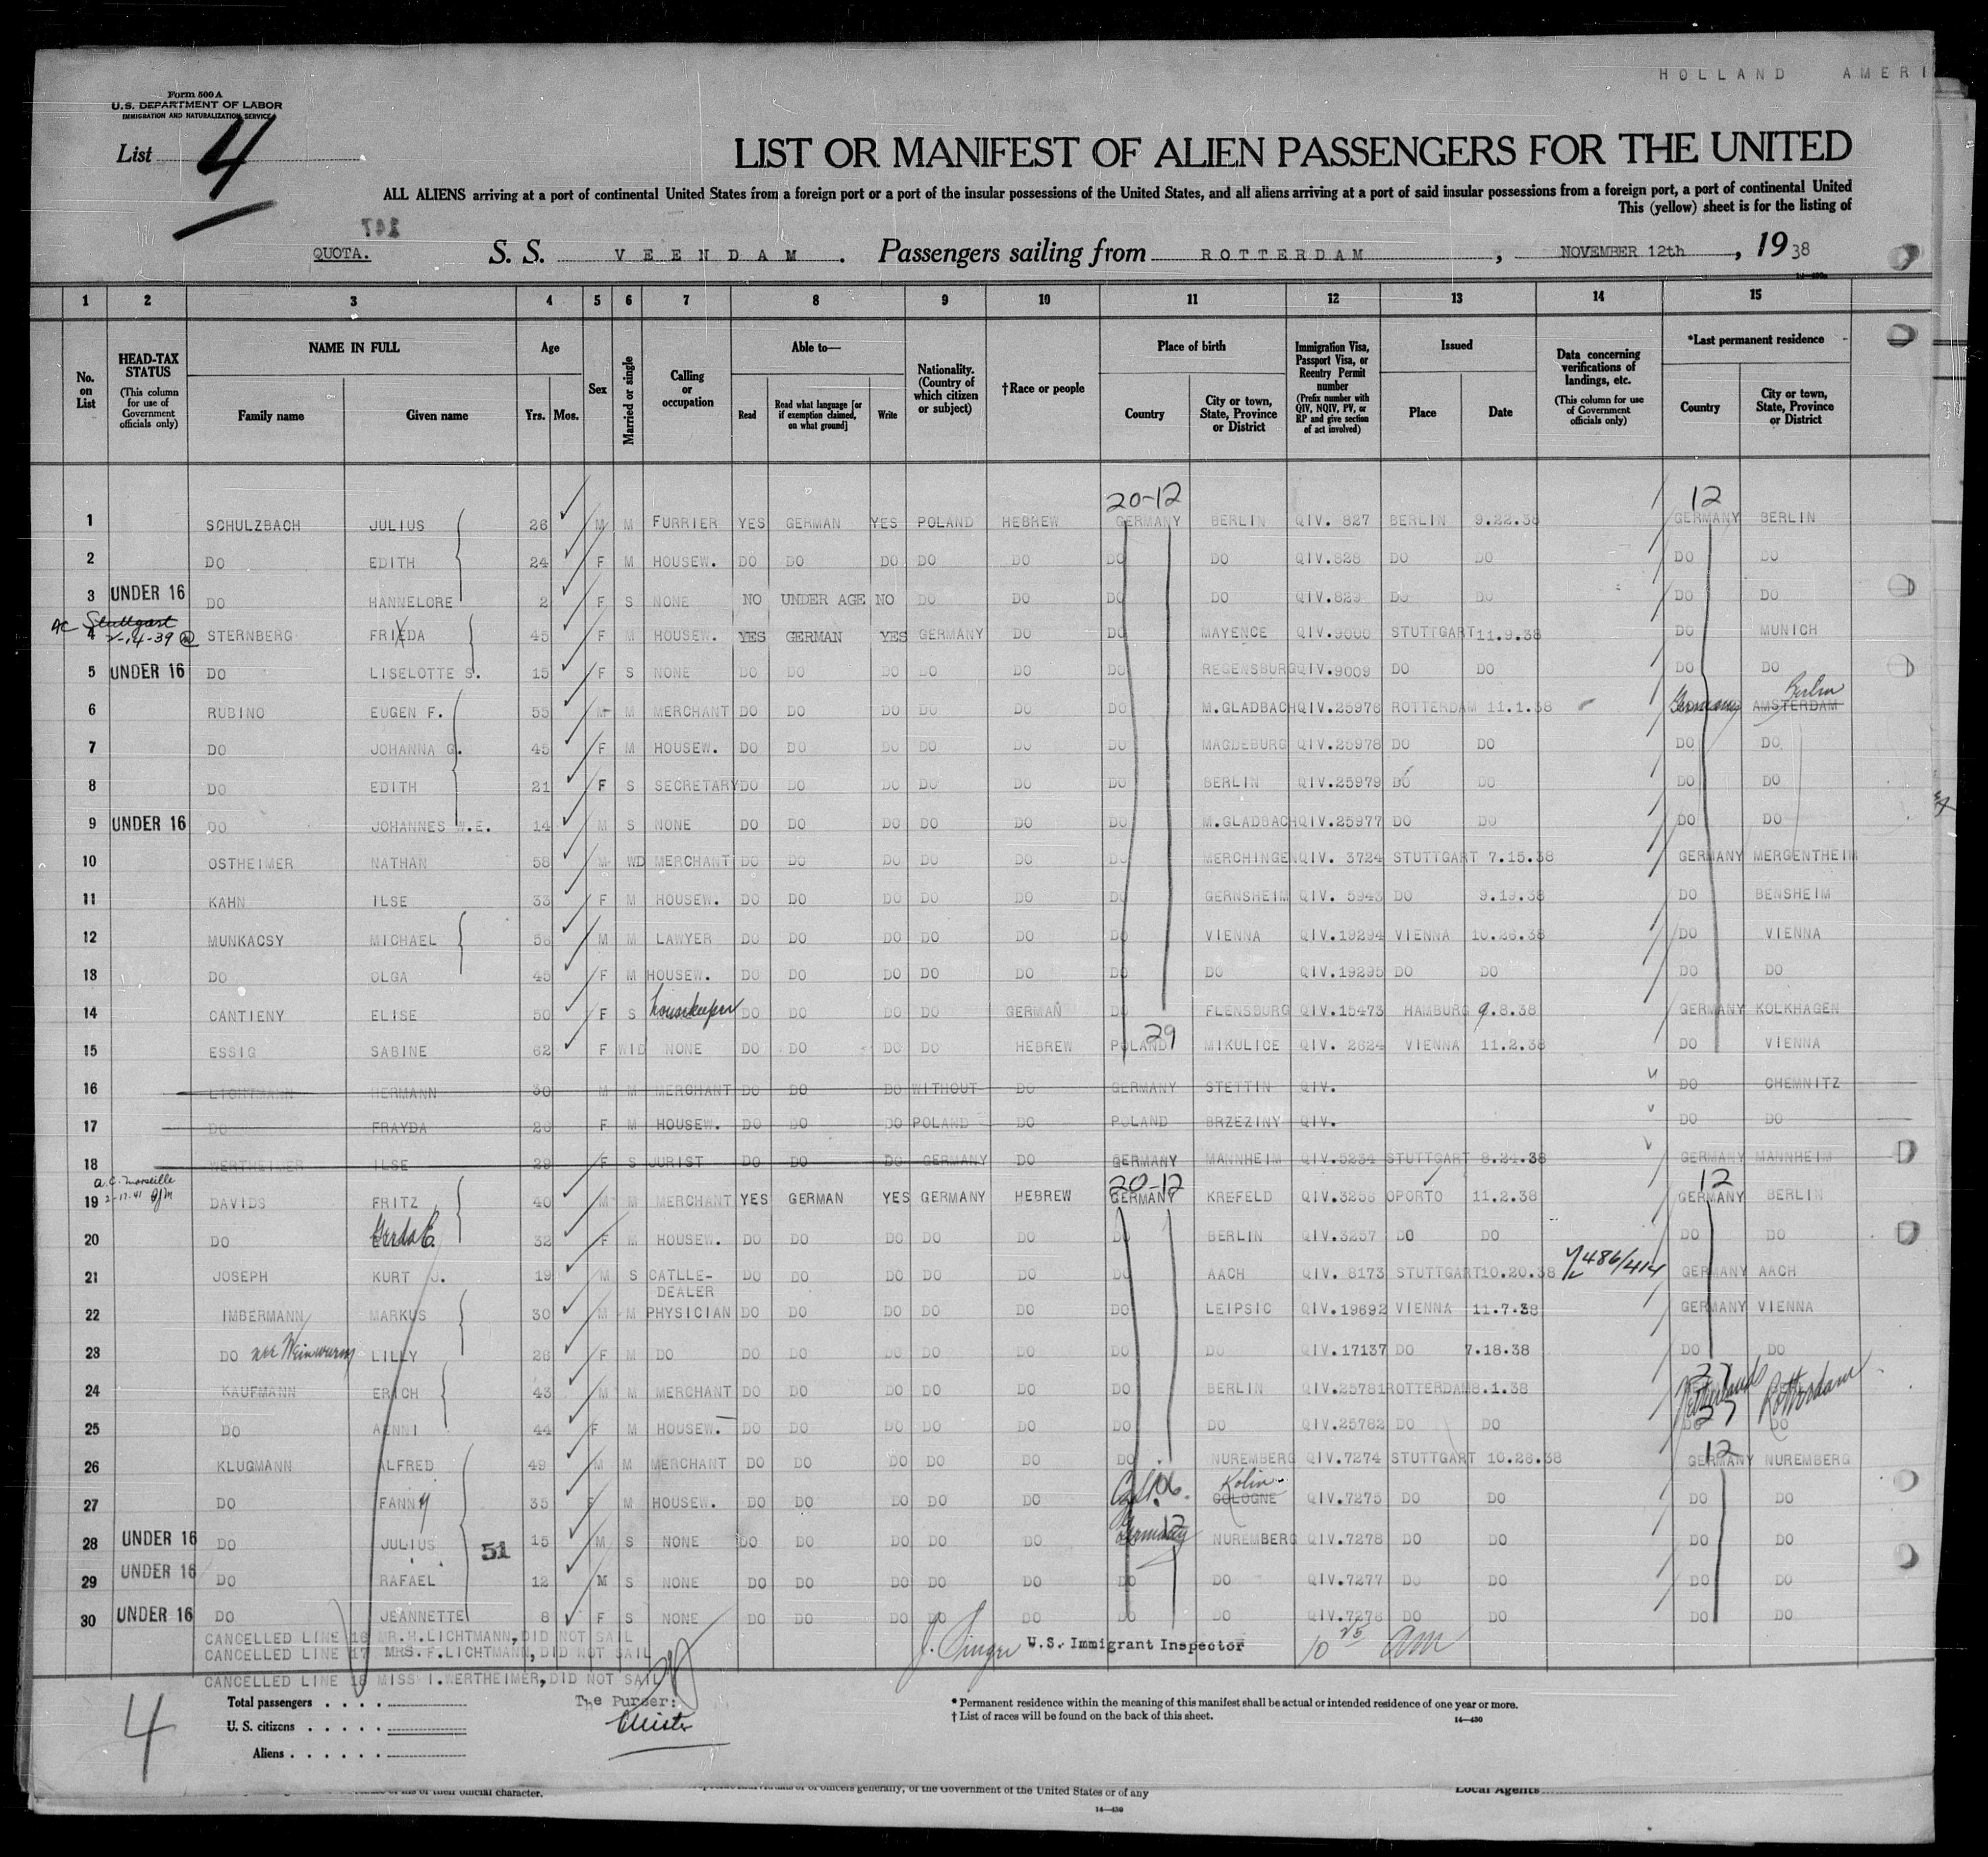 HOLLAND AMERI
Form 500 A
U.S. DEPARTMENT OF LABOR
IMMIGRATION AND NATURALIZATION SERVICE
List 4
LIST OR MANIFEST OF ALIEN PASSENGERS FOR THE UNITED
ALL ALIENS arriving at a port of continental United States from a foreign port or a port of the insular possessions of the United States, and all aliens arriving at a port of said insular possessions from a foreign port, a port of continental United
This (yellow) sheet is for the listing of
QUOTA. S. S. VEENDAM. Passengers sailing from ROTTERDAM, NOVEMBER 12th, 1938
1 2 3 4 5 6 7 8 9 10 11 12 13 14 15
No. on List
HEAD-TAX STATUS (This column for use of Government officials only)
NAME IN FULL Family name Given name
Age Yrs. Mos.
Sex
Married or single
Calling or occupation
Able to— Read Read what language [or if exemption claimed, on what ground] Write
Nationality. (Country of which citizen or subject)
†Race or people
Place of birth Country City or town, State, Province or District
Immigration Visa, Passport Visa, or Reentry Permit number (Prefix number with QIV, NQIV, PV, or RP and give section of act involved)
Issued Place Date
Data concerning verifications of landings, etc. (This column for use of Government officials only)
*Last permanent residence Country City or town, State, Province or District
20-12 12
1 SCHULZBACH JULIUS 26 M M FURRIER YES GERMAN YES POLAND HEBREW GERMANY BERLIN QIV. 827 BERLIN 9.22.38 GERMANY BERLIN
2 DO EDITH 24 F M HOUSEW. DO DO DO DO DO DO DO QIV.828 DO DO DO DO
3 UNDER 16 DO HANNELORE 2 F S NONE NO UNDER AGE NO DO DO DO DO QIV.829 DO DO DO DO
AC Stuttgart
4 2-14-39 STERNBERG FRIEDA 45 F M HOUSEW. YES GERMAN YES GERMANY DO DO MAYENCE QIV.9000 STUTTGART 11.9.38 DO MUNICH
5 UNDER 16 DO LISELOTTE S. 15 F S NONE DO DO DO DO DO DO REGENSBURG QIV.9009 DO DO DO DO
Berlin
6 RUBINO EUGEN F. 55 M M MERCHANT DO DO DO DO DO DO M.GLADBACH QIV.25976 ROTTERDAM 11.1.38 Germany AMSTERDAM
7 DO JOHANNA G. 45 F M HOUSEW. DO DO DO DO DO DO MAGDEBURG QIV.25978 DO DO DO DO
8 DO EDITH 21 F S SECRETARY DO DO DO DO DO DO BERLIN QIV.25979 DO DO DO DO
9 UNDER 16 DO JOHANNES W.E. 14 M S NONE DO DO DO DO DO DO M.GLADBACH QIV.25977 DO DO DO DO
10 OSTHEIMER NATHAN 58 M WD MERCHANT DO DO DO DO DO DO MERCHINGEN QIV. 3724 STUTTGART 7.15.38 GERMANY MERGENTHEIM
11 KAHN ILSE 33 F M HOUSEW. DO DO DO DO DO DO GERNSHEIM QIV. 5943 DO 9.19.38 DO BENSHEIM
12 MUNKACSY MICHAEL 56 M M LAWYER DO DO DO DO DO DO VIENNA QIV.19294 VIENNA 10.26.38 DO VIENNA
13 DO OLGA 45 F M HOUSEW. DO DO DO DO DO DO DO QIV.19295 DO DO DO DO
14 CANTIENY ELISE 50 F S housekeeper DO DO DO DO GERMAN DO FLENSBURG QIV.15473 HAMBURG 9.8.38 GERMANY KOLKHAGEN
29
15 ESSIG SABINE 62 F WID NONE DO DO DO DO HEBREW POLAND MIKULICE QIV. 2624 VIENNA 11.2.38 DO VIENNA
16 LICHTMANN HERMANN 30 M M MERCHANT DO DO DO WITHOUT DO GERMANY STETTIN QIV. DO CHEMNITZ
17 DO FRAYDA 26 F M HOUSEW. DO DO DO POLAND DO POLAND BRZEZINY QIV. DO DO
18 WERTHEIMER ILSE 29 F S JURIST DO DO DO GERMANY DO GERMANY MANNHEIM QIV.5234 STUTTGART 8.24.38 GERMANY MANNHEIM
a.C. Marseille 20-12 12
19 2-17-41 DAVIDS FRITZ 40 M M MERCHANT YES GERMAN YES GERMANY HEBREW GERMANY KREFELD QIV.3256 OPORTO 11.2.38 GERMANY BERLIN
20 DO Gerda E. 32 F M HOUSEW. DO DO DO DO DO DO BERLIN QIV.3257 DO DO DO DO
21 JOSEPH KURT J. 19 M S CATLLE-DEALER DO DO DO DO DO DO AACH QIV. 8173 STUTTGART 10.20.38 486/414 GERMANY AACH
22 IMBERMANN MARKUS 30 M M PHYSICIAN DO DO DO DO DO DO LEIPSIC QIV.19692 VIENNA 11.7.38 GERMANY VIENNA
23 DO nee Weinwurm LILLY 26 F M DO DO DO DO DO DO DO DO QIV.17137 DO 7.18.38 DO DO
24 KAUFMANN ERICH 43 M M MERCHANT DO DO DO DO DO DO BERLIN QIV.25781 ROTTERDAM 8.1.38 Netherlands Rotterdam
25 DO AENNI 44 F M HOUSEW. DO DO DO DO DO DO DO QIV.25782 DO DO DO DO
12
26 KLUGMANN ALFRED 49 M M MERCHANT DO DO DO DO DO DO NUREMBERG QIV.7274 STUTTGART 10.26.38 GERMANY NUREMBERG
Kolin
27 DO FANNY 35 F M HOUSEW. DO DO DO DO DO COLOGNE QIV.7275 DO DO DO DO
28 UNDER 16 DO JULIUS 15 M S NONE DO DO DO DO DO Germany 12 NUREMBERG QIV.7278 DO DO DO DO
51
29 UNDER 16 DO RAFAEL 12 M S NONE DO DO DO DO DO DO DO QIV.7277 DO DO DO DO
30 UNDER 16 DO JEANNETTE 8 F S NONE DO DO DO DO DO DO DO QIV.7276 DO DO DO DO
CANCELLED LINE 16 MR.H.LICHTMANN, DID NOT SAIL
CANCELLED LINE 17 MRS.F.LICHTMANN, DID NOT SAIL
J. Singer U.S. Immigrant Inspector 10 25 am
CANCELLED LINE 18 MISS I.WERTHEIMER, DID NOT SAIL
4
Total passengers
U. S. citizens
Aliens
The Purser:
* Permanent residence within the meaning of this manifest shall be actual or intended residence of one year or more.
† List of races will be found on the back of this sheet.
14—430
of their official character.
or officers generally, of the Government of the United States or of any
Local Agents
14—430